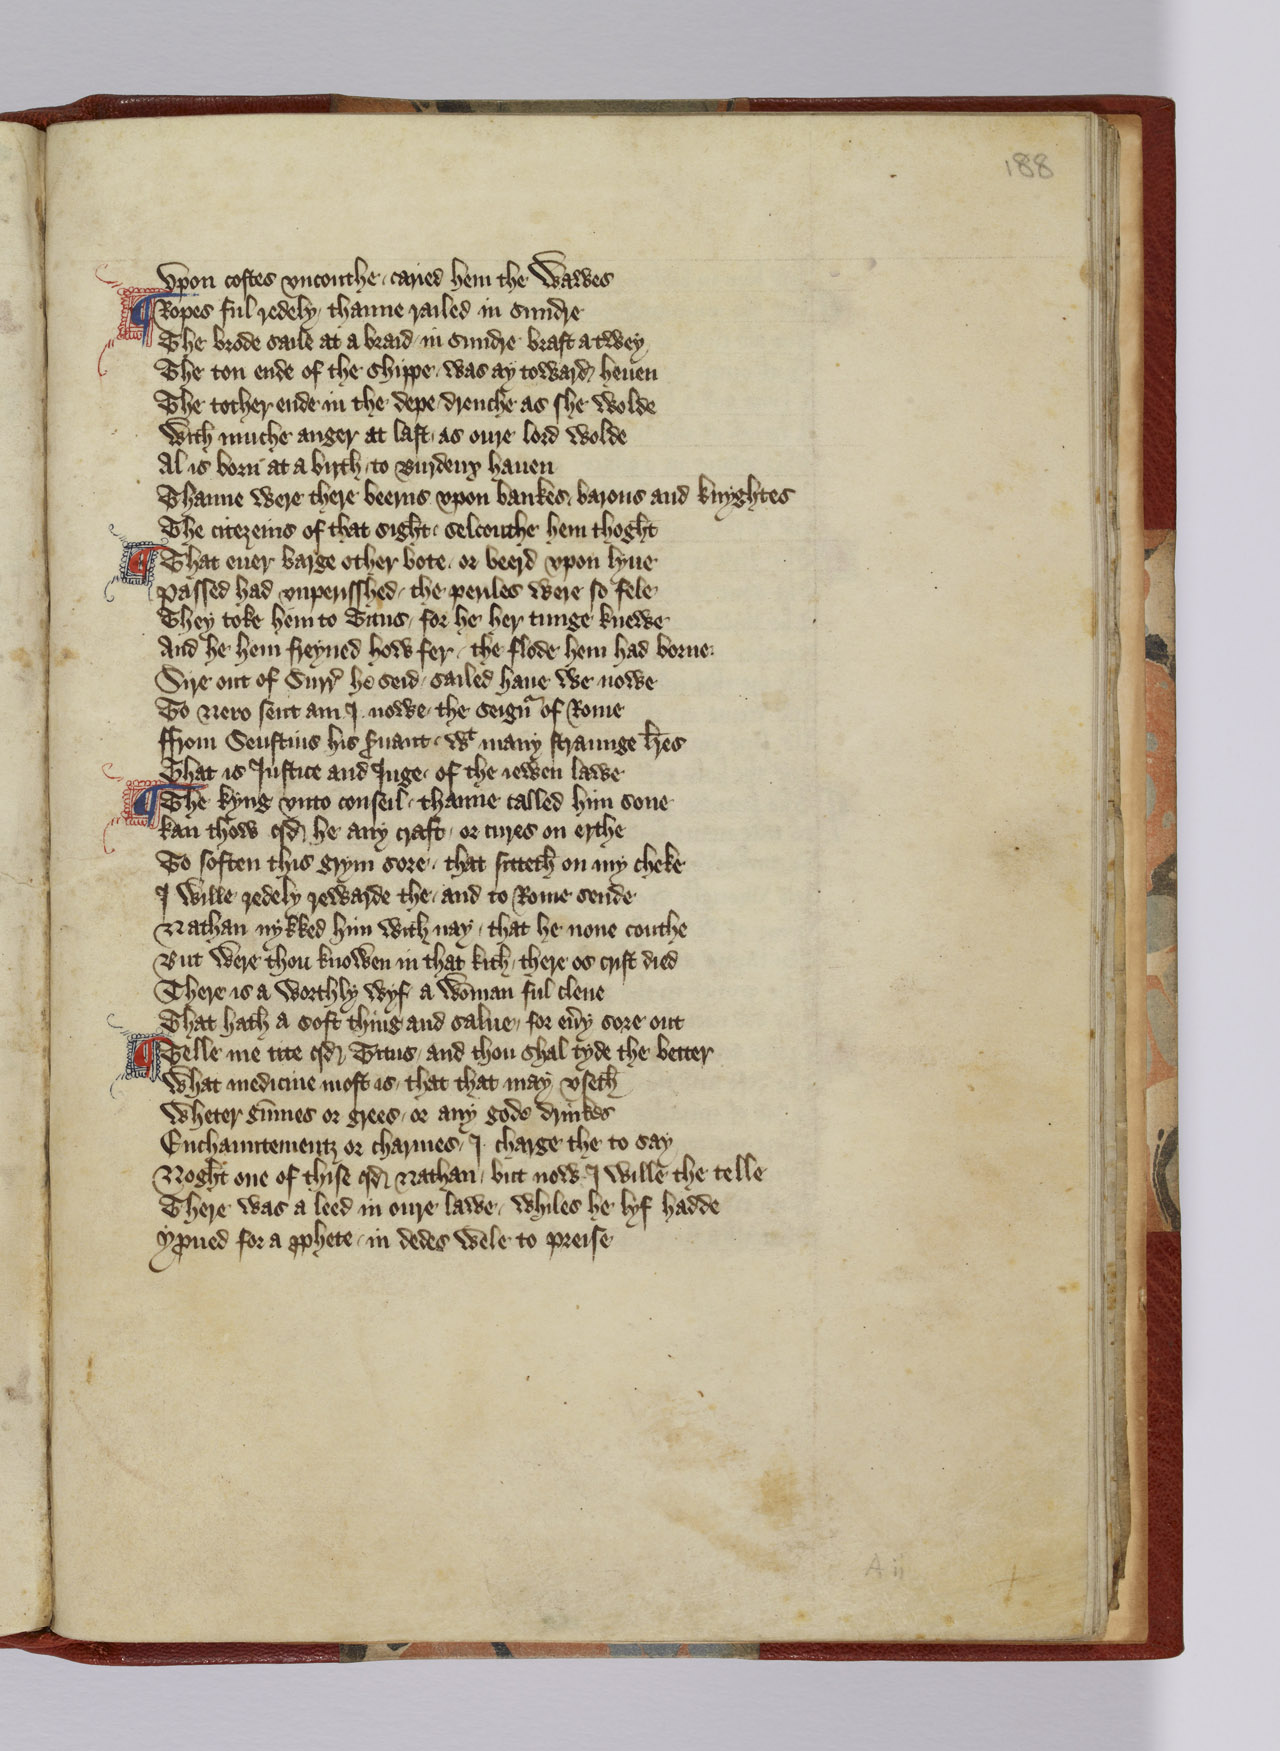 188
Vpon costes vncouthe / caried hem the wawes
¶ Ropes ful redely / thanne railed in sundre
The brode saile at a braid / in sundre brast atwey
The ton ende of the shippe / was ay toward heuen
The tother ende in the depe / drenche as she wolde
With muche anger at last / as oure lord wolde
Al is born at a birth / to Burdeux hauen
Thanne were there beerns vpon bankes / barons and knyghtes
The citezeins of that sight / selcouthe hem thoght
¶ That euer barge other bote / or beerd vpon lyue
Passed had vnperisshed / the periles were so fele
They toke hem to Titus / for he her tunge knewe
And he hem freyned how fer / the flode hem had borne
Sire out of Surr' he seid / sailed haue we nowe
To Nero sent am I nowe / the seign' of Rome
ffrom Sensteus his s'uant / wt many straunge l'res
That is Justice and Juge / of the iewen lawe
¶ The kyng vnto conseil / thanne called him sone
Kan thow qd he any craft / or cures on erthe
To soften this grym sore / that sitteth on my cheke
I wille redely rewarde the / and to Rome sende
Nathan nykked him with nay / that he none couthe
But were thou knowen in that kith / there os crist died
There is a worthly wyf / a woman ful clene
That hath a soft thing and salue / for eu'y sore out
¶ Telle me tite qd Titus / and thou shal tyde the better
What medicine most is / that that may vseth
Wheter gu'mes or grees / or any gode drinkes
Enchauntementz or charmes / I charge the to say
Noght one of thise qd Nathan / but now I wille the telle
There was a leed in oure lawe / whiles he lyf hadde
yp'ued for a p'phete / in dedes wele to preise
A ii